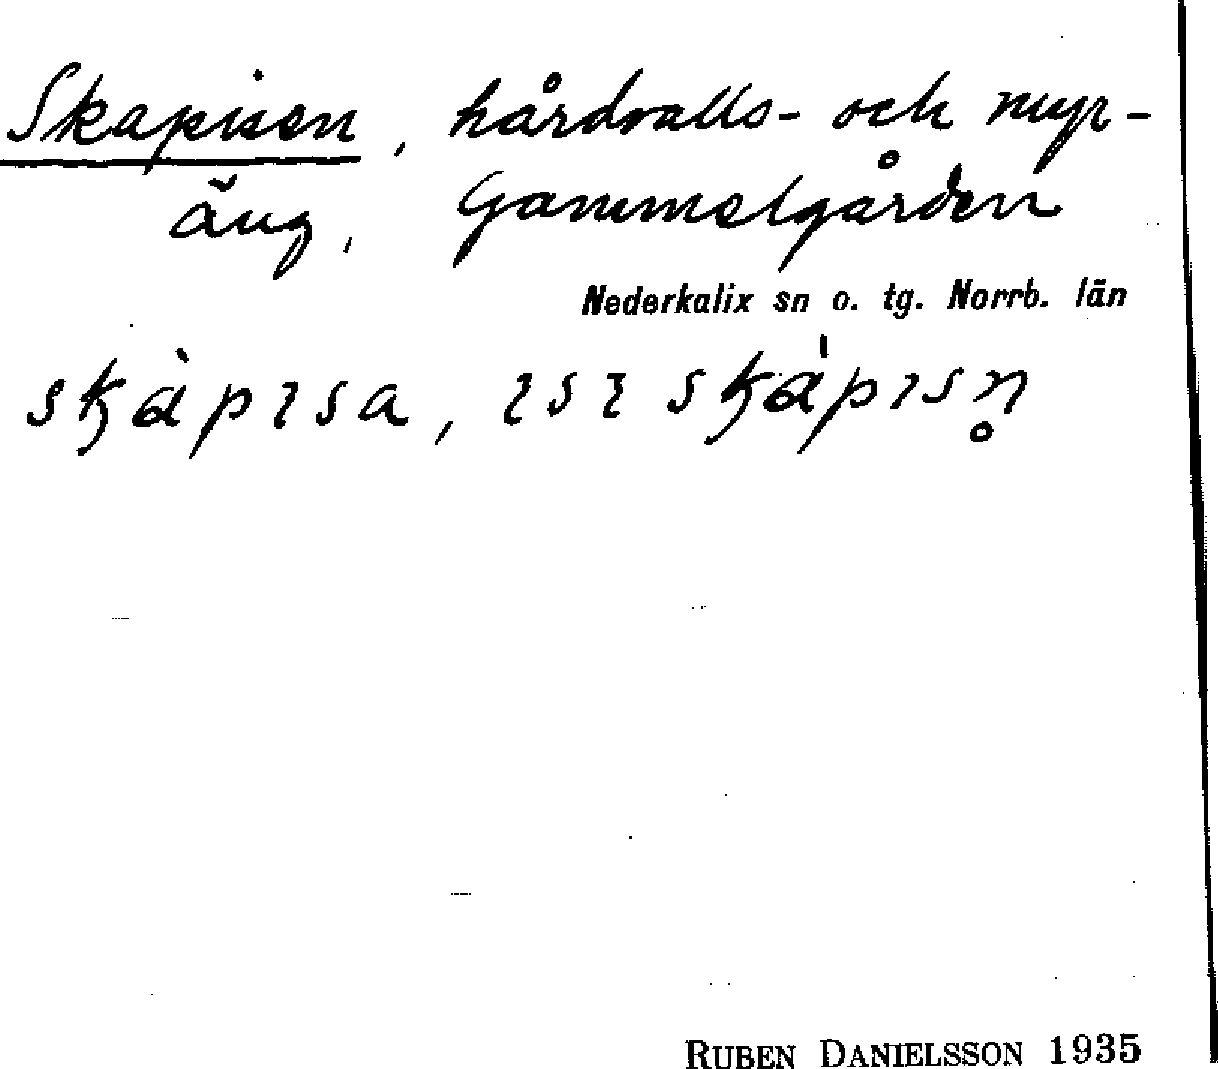 Skapisen, hårdvalls- och myr-
äng, Gammelgården
Nederkalix sn o. tg. Norrb. län
RUBEN DANIELSSON 1935